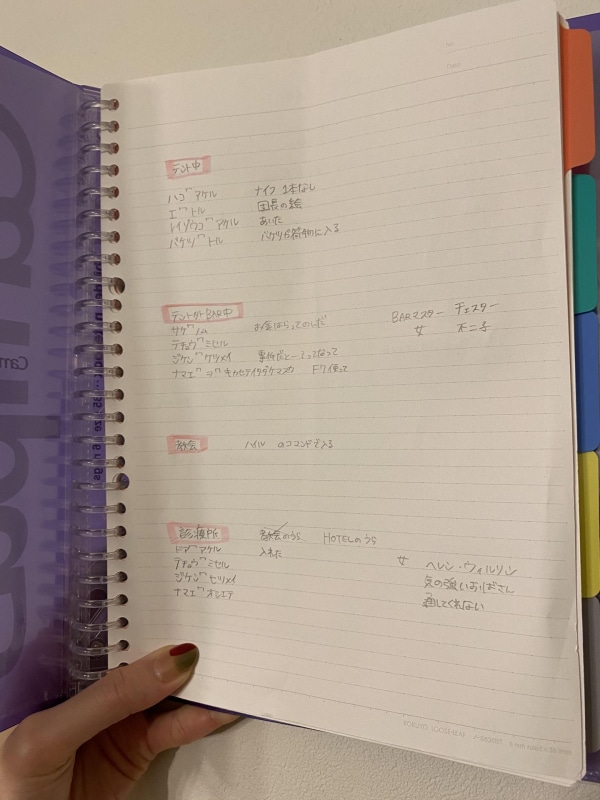 No.
Date
テント中
ハコ゛アケル ナイフ 1本なし
エ゛トル 団長の絵
レイゾウコ゛アケル あいた
バケツ゛トル バケツが荷物に入る
テントガイ BAR中 BARマスター チェスター
サケ゛ノム お金はらってのんだ 女 不二子
テチョウ゛ミセル
ジケン゛ セツメイ 事件だと言って
ナマエ゛ヲ゛キカセテイタダケマスカ F7 使って
教会 ハイル のコマンドで入る
診療所 HOTELのうら
ドア゛アケル 入れた 女 ヘレン・ウィルソン
テチョウ゛ミセル 気の強いおばさん
ジケン゛セツメイ 通してくれない
ナマエ゛オシエテ
KOKUYO LOOSE-LEAF